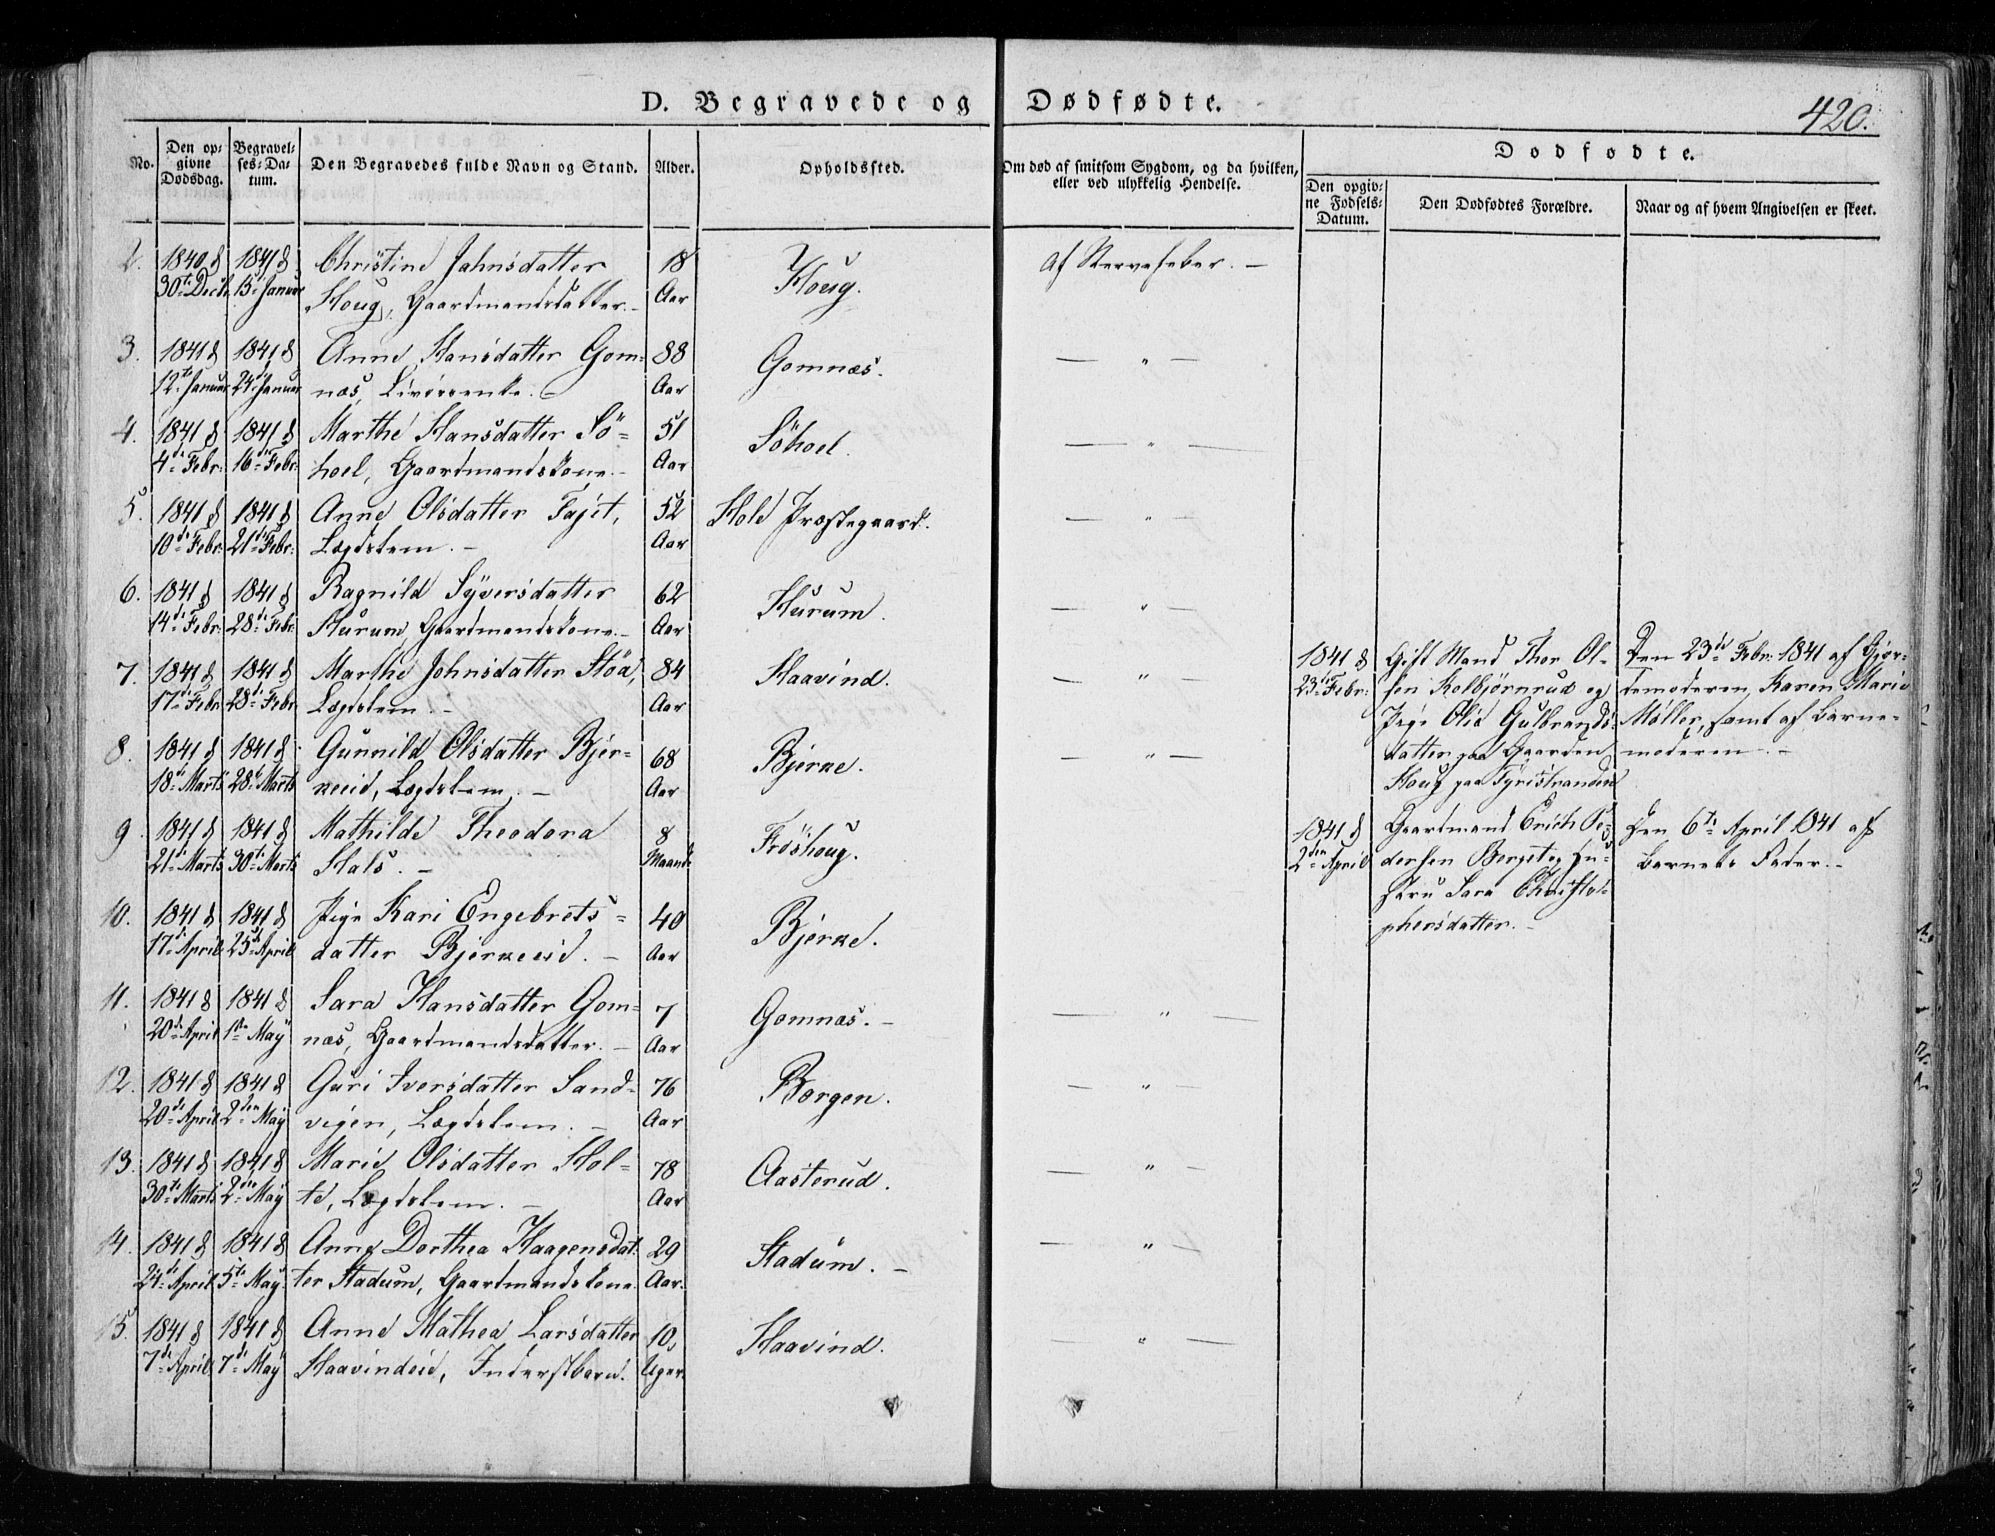 D. Begravede og Dødfødte.
420.
No.
Den op-
givne
Dødsdag.
Begravel-
ses-Da-
tum.
Den Begravedes fulde Navn og Stand.
Alder.
Opholdssted.
Om død af smitsom Sygdom, og da hvilken,
eller ved ulykkelig Hendelse.
Dødfødte.
Den opgiv-
ne Fødsels-
Datum.
Den Dødfødtes Forældre.
Naar og af hvem Angivelsen er skeet.
2. 1840 d 1841 d Christine Jahnsdatter 18 Houg. Af Nervefeber. —
30te Decb. 15de Januar Houg, Gaardmandsdatter. — Aar
3. 1841 d 1841 d Anne Hansdatter Gom- 88 Gomnæs. — " —
12te Januar 24de Januar næs, Livörrenke. — Aar
4. 1841 d 1841 d Marthe Hansdatter Sö- 51 Söhoel. — " —
4de Febr: 16de Febr: hoel, Gaardmandskone. — Aar
5. 1841 d 1841 d Anne Olsdatter Fajet, 52 Hole Præstegaard. — " —
10de Febr: 21de Febr: Lægdslem. — Aar
6. 1841 d 1841 d Ragnild Syversdatter 62 Hurum. — " —
14de Febr: 28de Febr: Hurum, Gaardmandskone. — Aar
7. 1841 d 1841 d Marthe Johnsdatter Stöa, 84 Haavind. — " —
17de Febr: 28de Febr: Lægdslem. — Aar
8. 1841 d 1841 d Gunnild Olsdatter Bjer- 68 Bjerke. — " —
18de Marts 28de Marts keeie, Lægdslem. — Aar
9. 1841 d 1841 d Mathilde Theodora 8 Fröshoug.
21de Marts 30te Marts Hals. — Maand:
10. 1841 d 1841 d Pige Kari Engebrets- 40 Bjerke.
17de April 25de April datter Bjerkeeie. — Aar
11. 1841 d 1841 d Sara Hansdatter Gom- 7 Gomnæs. — — " —
20de April 1ste May næs, Gaardmandsdatter. — Aar
12. 1841 d 1841 d Guri Iversdatter Sand- 76 Borgen. — " —
20de April 2den May vigen, Lægdslem. — Aar
13. 1841 d 1841 d Marie Olsdatter Hol- 78 Aasterud. — " —
30te Marts 2den May te, Lægdslem. — Aar
14. 1841 d 1841 d Anne Dorthea Haagensdat- 29 Stadum. — — " —
24de April 5te May ter Stadum, Gaardmandskone. Aar.
15. 1841 d 1841 d Anne Mathea Larsdatter 10 Haavind. — " —
7de April 7de May Haavindeie, Inderstbarn. Uger.
1841 d Gift Mand Thor Ol- Den 23de Febr: 1841 af Gjor-
23de Febr: sen Kolbjørnrud og demoderen, Karen Marie
Pige Olia Gulbrands- Møller, samt af Barne-
datter paa Gaarden moderen. —
Houg paa Tyristranden
1841 d Gaardmand Erich Pe- Den 6te April 1841 af
2den April dersen Berget og Hu- Barnets Fader. —
stru Sara Christo-
phersdatter. —